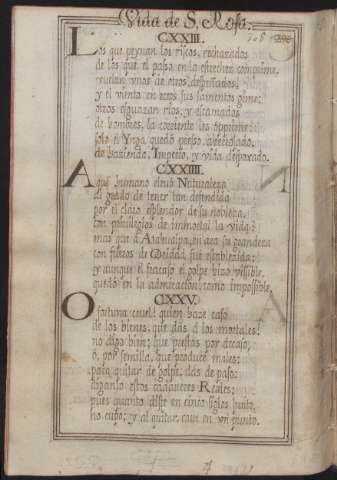 Vida de S. Rosa.
CXXIII.
Los que peynan los riscos, rechazados
de los que el passo en la estrechez comprime,
ruedan vnos de otros despeñados,
y el viento en ecos sus lamentos gime:
otros esguazan rios, y
de hombres, la corriente los opprime:
solo el Ynga quedó preso
de hazienda, Imperio, y vida despojado.
CXXIIII.
A que humano Naturaleza
el grado de tener tan defendida
por el claro esplendor de su nobleza,
con privilegios de immortal la vida?
mas que à Atahualpa, en esa su grandeza
con fuerzos de Deidad, fue establecida;
y aunque el fracaso el golpe hizo visible,
quedó en la admiracion como Impossible.
CXXV.
O fortuna cruel! quien haze caso
de los bienes, que dàs à los mortales!
no digo bien; que prestas por acaso,
ò, por semilla, que produce males;
para quitar de golpe, dàs de paso:
diganlo estos Reales;
pues quanto diste en cinco siglos junto,
no cupo; y al quitar, cave en vn punto.